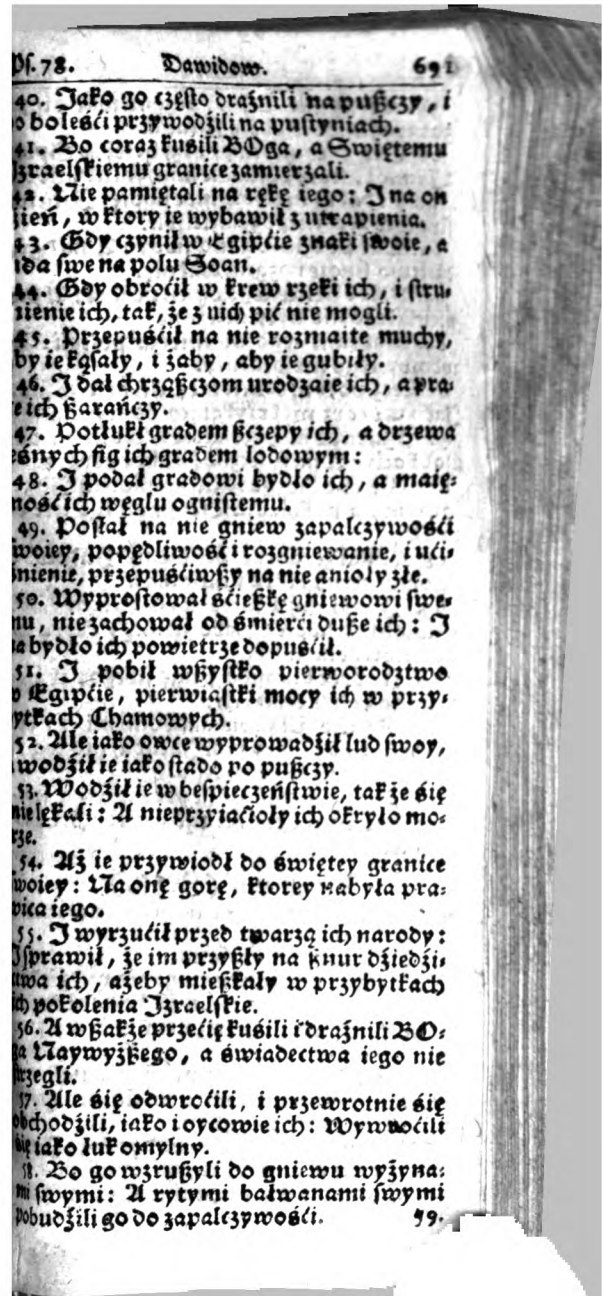 Ps. 78. Dawidow. 691
40. Jáko go często draźnili na pußczy, i
o boleśći przywodźili na pustyniach.
41. Bo coraz kuśili BOga, a Swiętemu
Izraelskiemu granice zamierzali.
42. Nie pamiętali na rękę iego: I na on
źień, w ktory ie wybawił z utrapienia.
43. Gdy czynił w Egipćie znaki swoie, a
uda swe na polu Soan.
44. Gdy obroćił w krew rzeki ich, i stru-
mienie ich, tak, że z nich pić nie mogli.
45. Przepuśćił na nie rozmaite muchy,
by ie kąsały, i żaby, aby ie gubiły.
46. I dał chrząßczom urodzaie ich, a pra-
e ich ßarańczy.
47. Potłukł gradem ßczepy ich, a drzewa
eśnych fig ich gradem lodowym:
48. I podał gradowi bydło ich, a maię-
ność ich węglu ognistemu.
49. Posłał na nie gniew zapalczywośći
woiey, popędliwość i rozgniewanie, i ući-
śnienie, przepuśćiwßy na nie anioły złe.
50. Wyprostował śćießkę gniewowi swe-
mu, nie zachował od śmierći duße ich: I
a bydło ich powietrze dopuśćił.
51. I pobił wßystko pierworodztwo
w Egipćie, pierwiastki mocy ich w przy-
ytkach Chamowych.
52. Ale iako owce wyprowadźił lud swoy,
wodźił ie iako stado po pußczy.
53. Wodźił ie w bespieczeństwie, tak że się
nie lękali: A nieprzyiaćioły ich okryło mo-
rze.
54. Aż ie przywiodł do świętey granice
woiey: Na onę gorę, ktorey nabyła pra-
wica iego.
55. I wyrzućił przed twarzą ich narody:
I sprawił, że im przyßły na ßnur dźiedźi-
twa ich, ażeby mießkały w przybytkach
ich pokolenia Izraelskie.
56. A wßakże przećię kuśili i draźnili BO-
ga Naywyżßego, a świadectwa iego nie
strzegli.
57. Ale się odwroćili, i przewrotnie się
obchodźili, iako i oycowie ich: Wywroćili
się iako łuk omylny.
58. Bo go wzrußyli do gniewu wyżyna-
mi swymi: A rytymi bałwanami swymi
pobudźili go do zapalczywośći. 59.